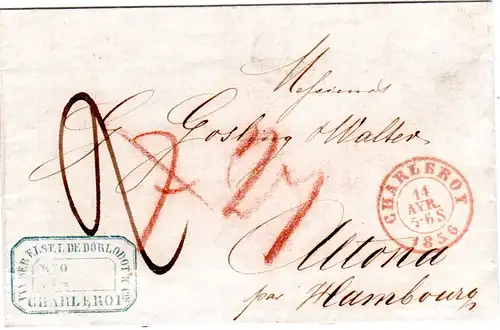 Messieurs
G. Gosling & Walter
Altona
par Hambourg
2
7 27
CHARLEROY
14
AVR.
5-6S
1856
VAN DER ELST, L. DE DORLODOT & CIE
CHARLEROI